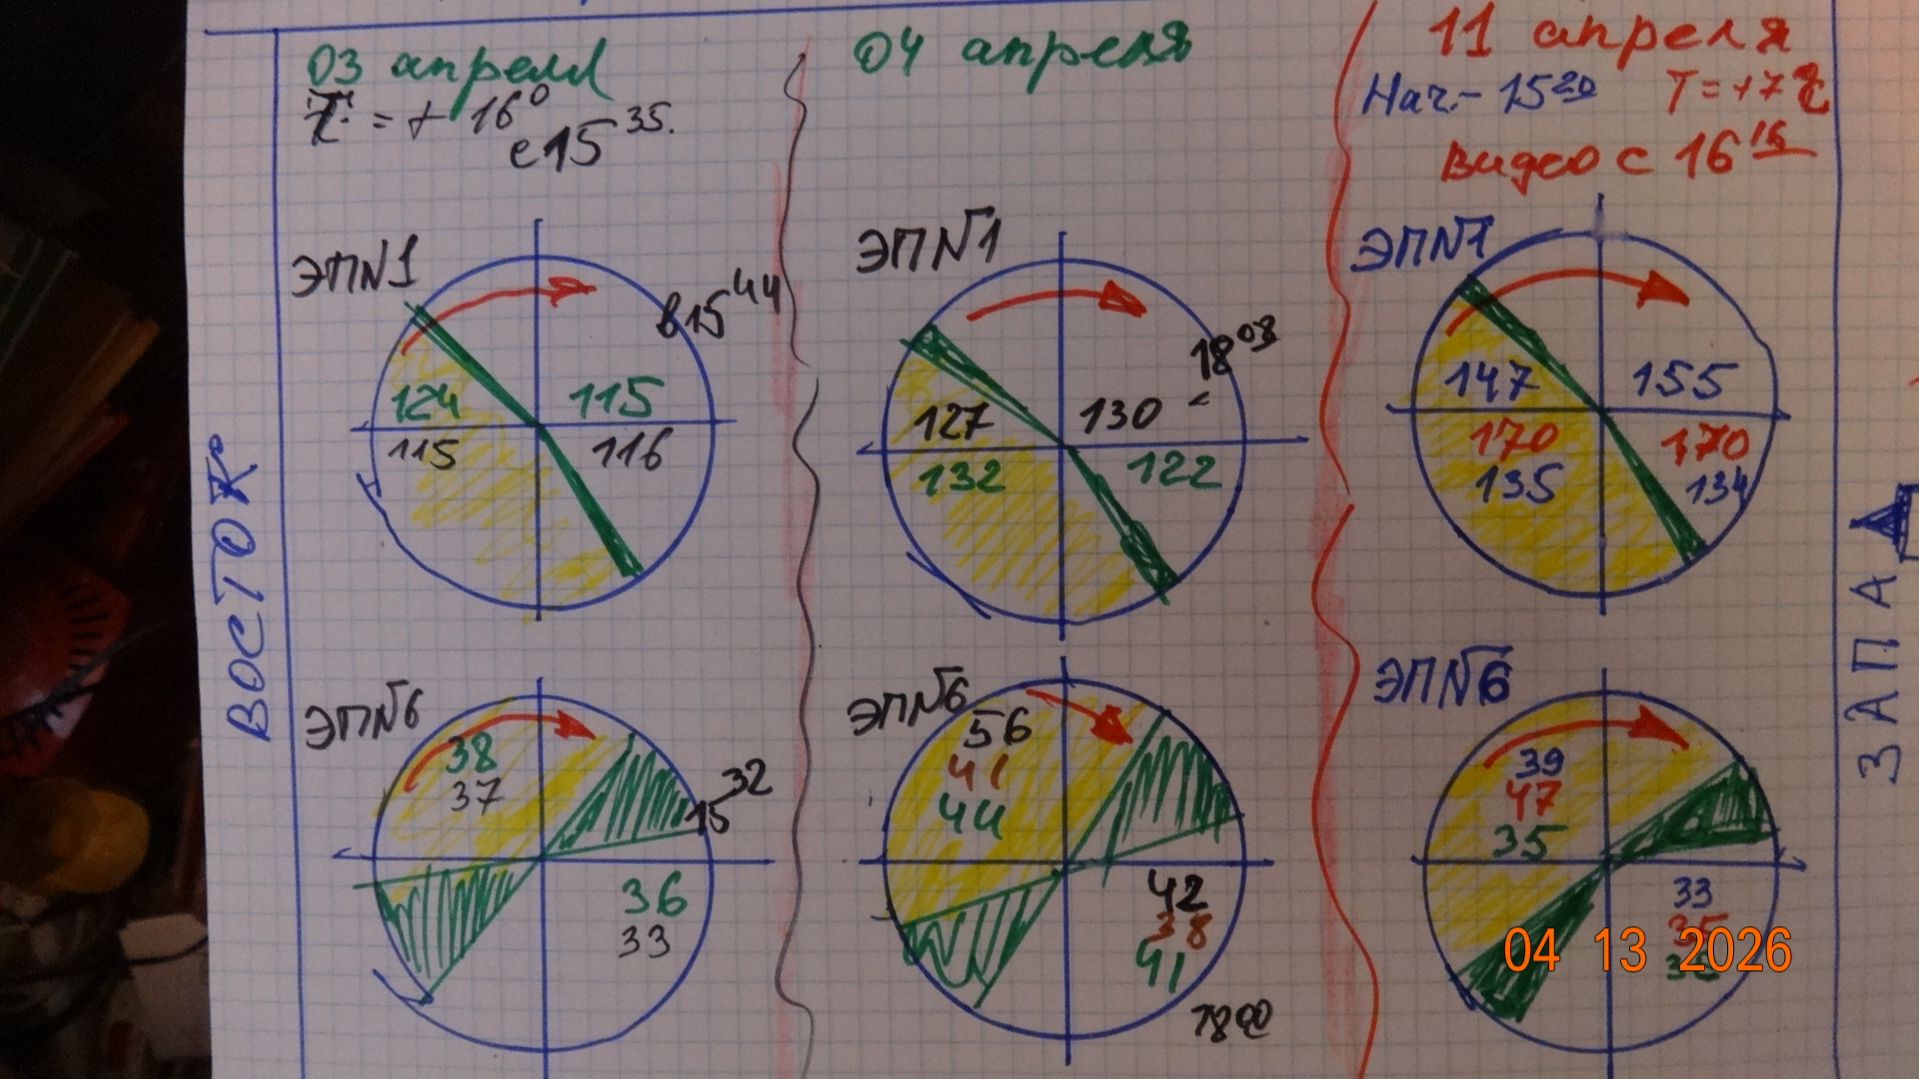 03 апреля
T = + 16⁰
с 15 35.
ЭП№1
в 15 44
124
115
115
116
ЭП№6
38
37
15 32
36
33
04 апреля
ЭП№1
18 08
127
130
132
122
ЭП№6
56
41
44
42
38
41
18 00
11 апреля
Нач.- 15 20 T = +7
Видео с 16 16
ЭП№1
147
155
170
170
135
134
ЭП№6
39
47
35
33
35
04 13 2026
ВОСТОК
ЗАПАД